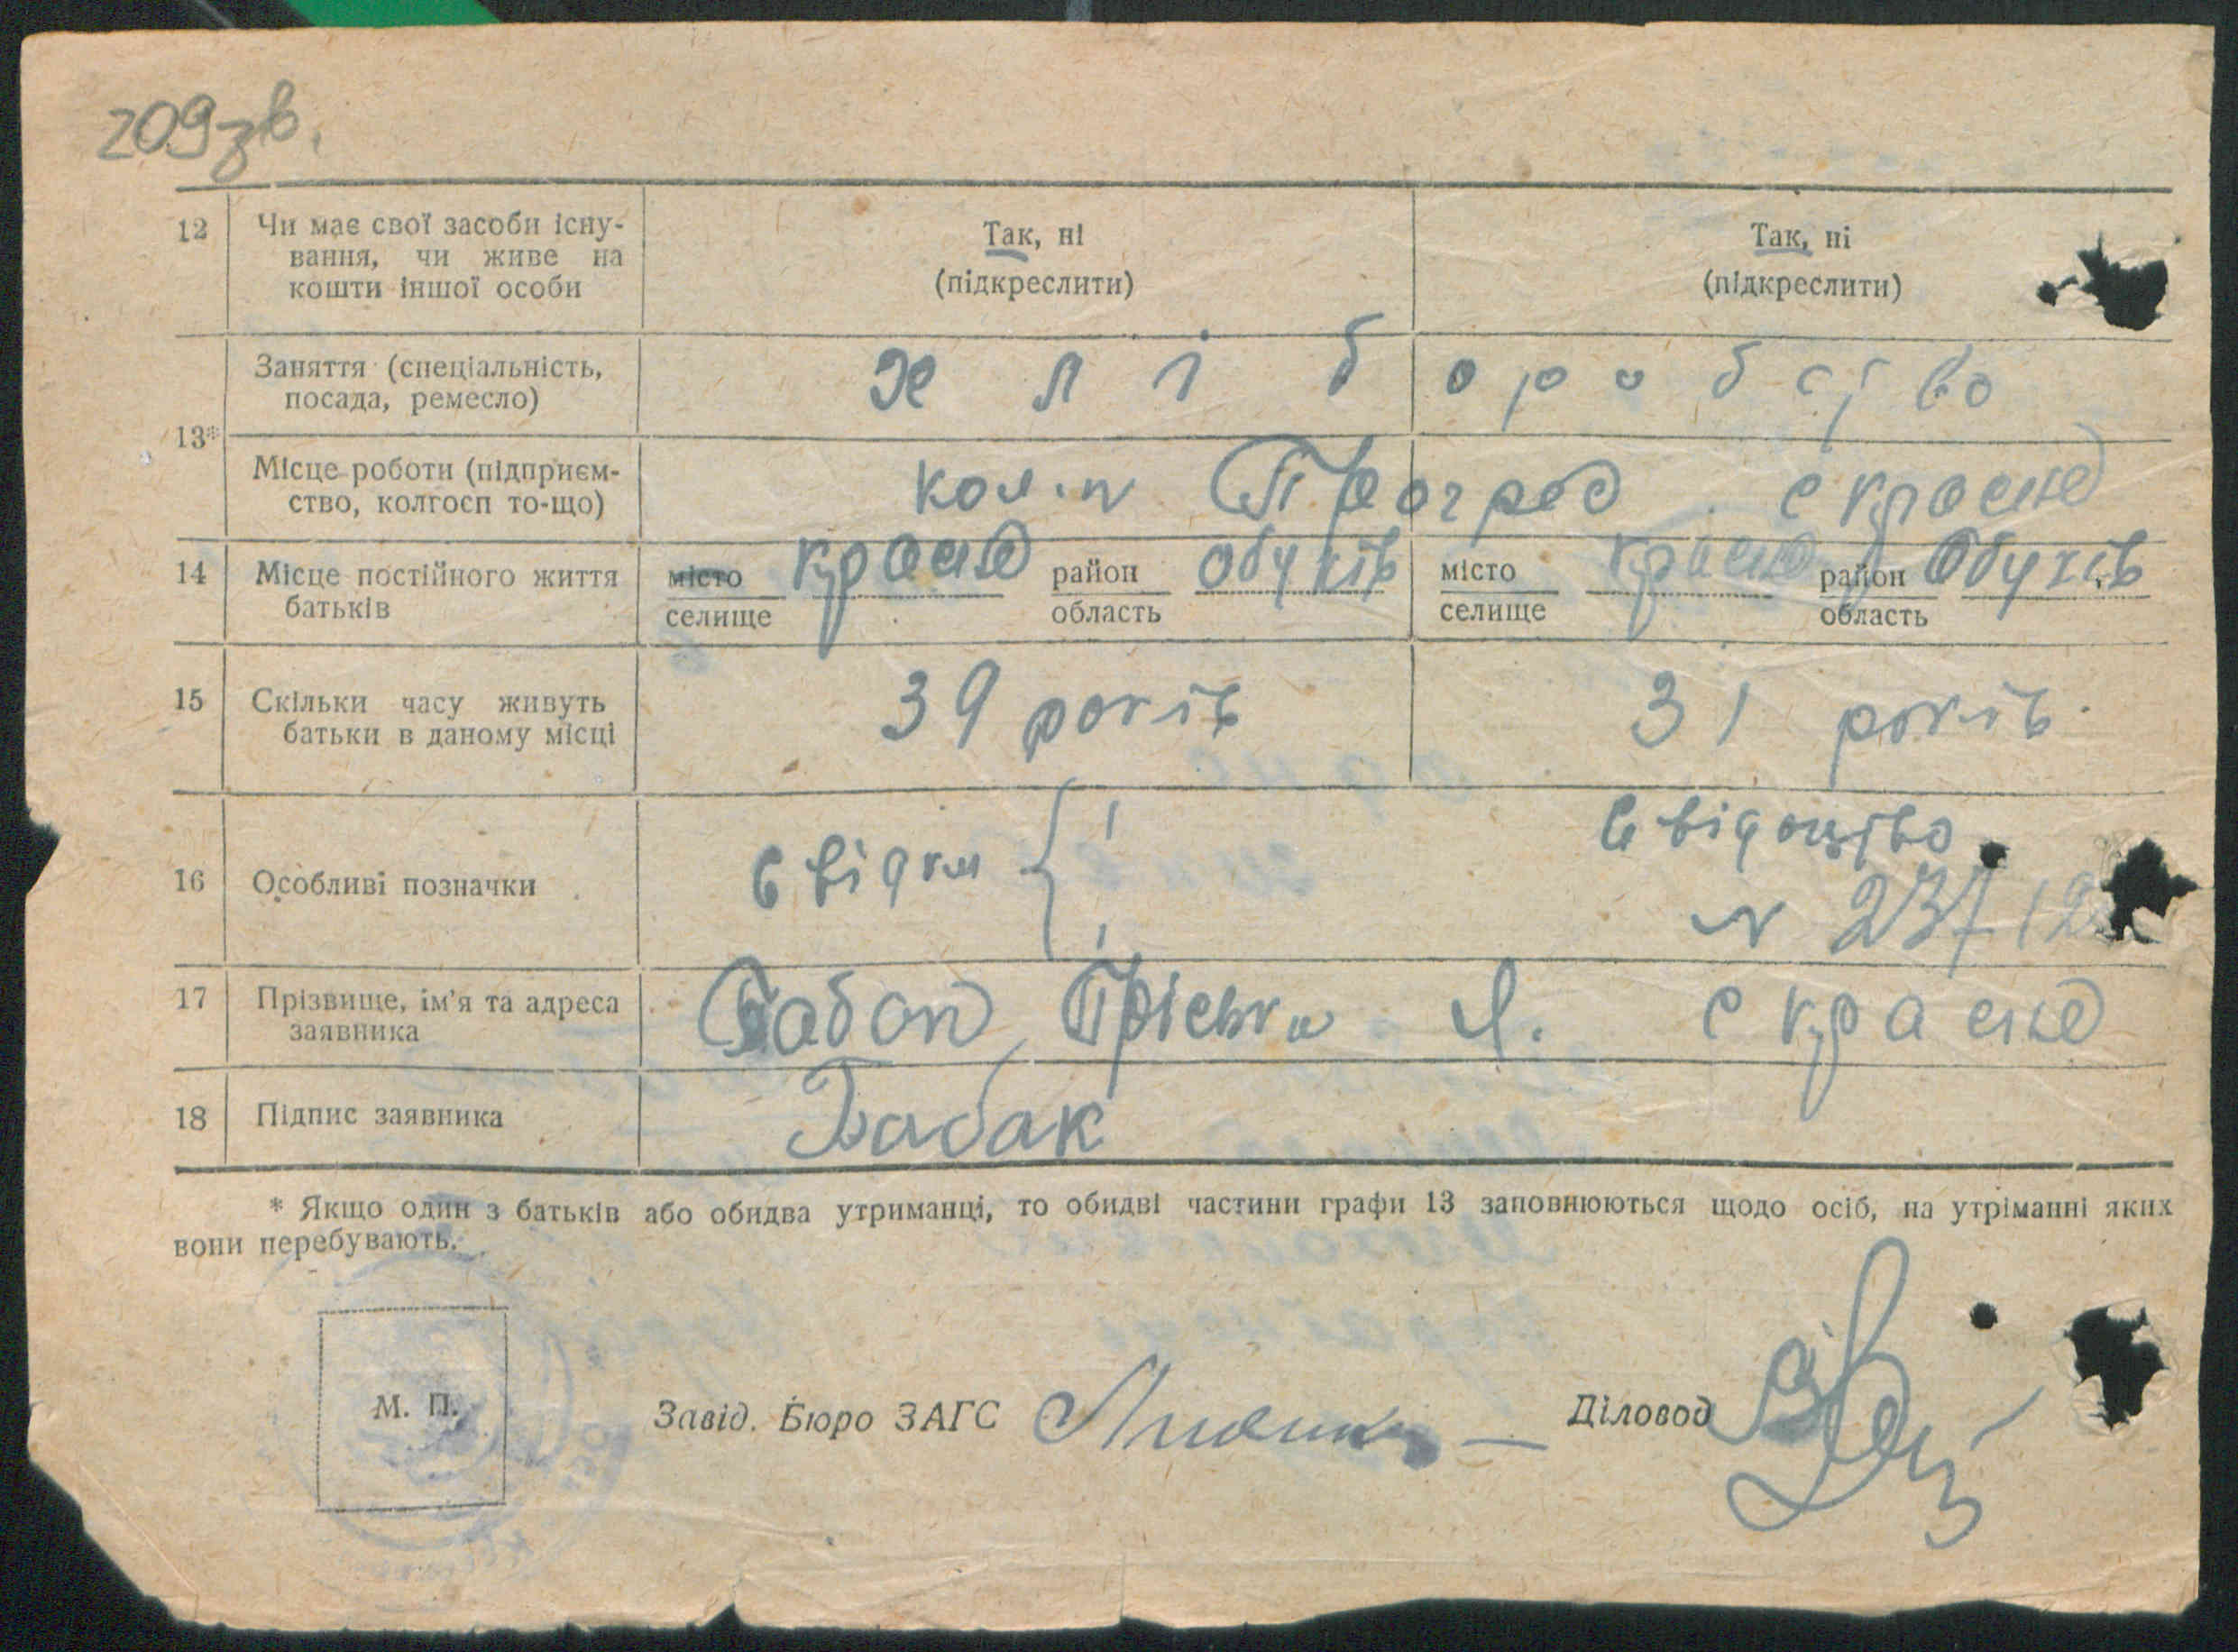 209зв.
12 Чи має свої засоби існу-
вання, чи живе на
кошти іншої особи
Так, ні
(підкреслити)
Так, ні
(підкреслити)
13*
Заняття (спеціальність,
посада, ремесло)
хліборобство
Місце роботи (підприєм-
ство, колгосп то-що)
с красне
14 Місце постійного життя
батьків
місто
селище
красне
район
область
Обухів
місто
селище
красне
район
область
Обухів
15 Скільки часу живуть
батьки в даному місці
39 років
31 років.
16 Особливі позначки
свідки { 1
свідоцтво
N 23712
17 Прізвище, ім'я та адреса
заявника
Бабак Пріська Я. с красне
18 Підпис заявника
Бабак
* Якщо один з батьків або обидва утриманці, то обидві частини графи 13 заповнюються щодо осіб, на утріманні яких
вони перебувають.
М. П.
Завід. Бюро ЗАГС
Діловод